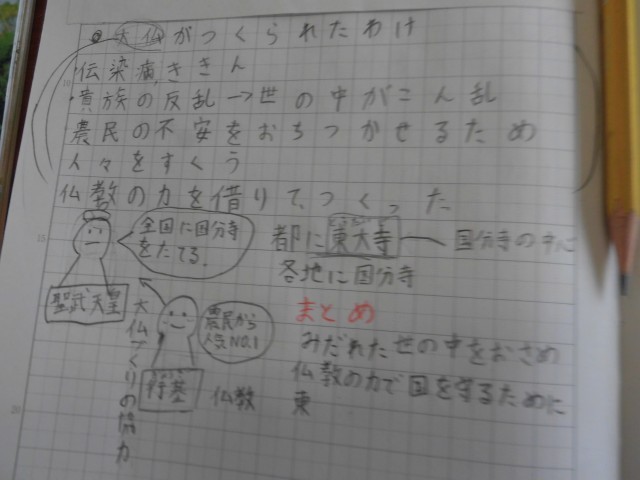 大仏がつくられたわけ
・伝染病、ききん
・貴族の反乱→世の中がこん乱
農民の不安をおちつかせるため
人々をすくう
仏教の力を借りて、つくった
全国に国分寺
をたてる。
都に東大寺 ― 国分寺の中心
各地に国分寺
15
聖武天皇
大仏づくりの協力
農民から
人気NO.1
行基
まとめ
みだれた世の中をおさめ
仏教の力で国を守るために
仏教
東
20